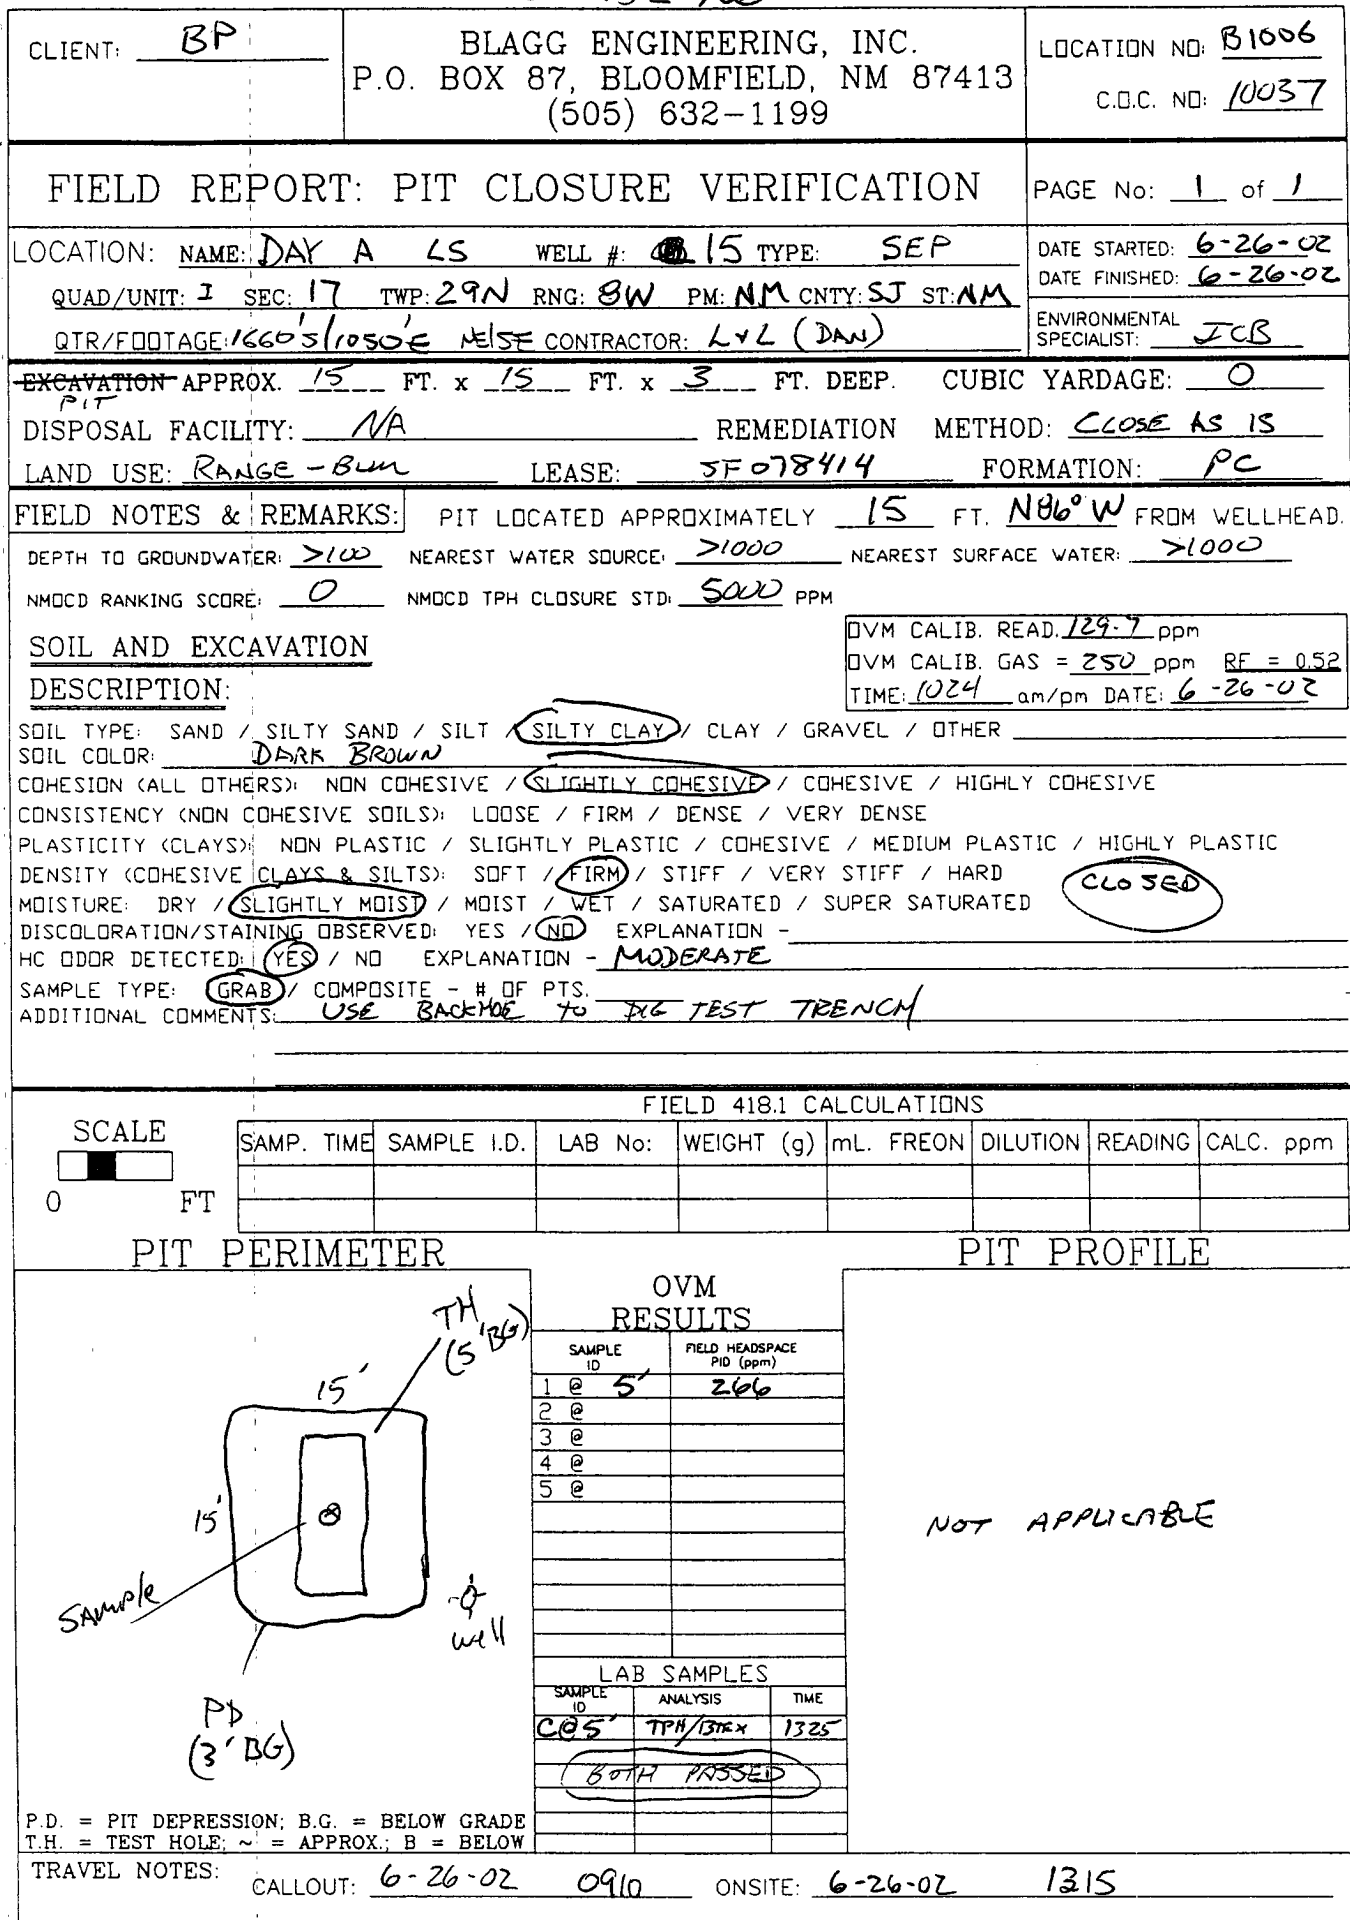 CLIENT: BP
BLAGG ENGINEERING, INC.
P.O. BOX 87, BLOOMFIELD, NM 87413
(505) 632-1199
LOCATION NO: B1006
C.O.C. NO: 10037
FIELD REPORT: PIT CLOSURE VERIFICATION
PAGE No: 1 of 1
LOCATION: NAME: DAY A LS WELL #: 15 TYPE: SEP
QUAD/UNIT: I SEC: 17 TWP: 29N RNG: 8W PM: NM CNTY: SJ ST: NM
QTR/FOOTAGE: 1660'S/1050'E NE/SE CONTRACTOR: L+L (DAN)
DATE STARTED: 6-26-02
DATE FINISHED: 6-26-02
ENVIRONMENTAL
SPECIALIST: JCB
EXCAVATION APPROX. 15 FT. x 15 FT. x 3 FT. DEEP. CUBIC YARDAGE: 0
PIT
DISPOSAL FACILITY: NA REMEDIATION METHOD: CLOSE AS IS
LAND USE: RANGE - BLM LEASE: SF 078414 FORMATION: PC
FIELD NOTES & REMARKS: PIT LOCATED APPROXIMATELY 15 FT. N86°W FROM WELLHEAD.
DEPTH TO GROUNDWATER: >100 NEAREST WATER SOURCE: >1000 NEAREST SURFACE WATER: >1000
NMOCD RANKING SCORE: 0 NMOCD TPH CLOSURE STD: 5000 PPM
SOIL AND EXCAVATION
DESCRIPTION:
OVM CALIB. READ. 129.7 ppm
OVM CALIB. GAS = 250 ppm RF = 0.52
TIME: 1024 am/pm DATE: 6-26-02
SOIL TYPE: SAND / SILTY SAND / SILT / SILTY CLAY / CLAY / GRAVEL / OTHER
SOIL COLOR: DARK BROWN
COHESION (ALL OTHERS): NON COHESIVE / SLIGHTLY COHESIVE / COHESIVE / HIGHLY COHESIVE
CONSISTENCY (NON COHESIVE SOILS): LOOSE / FIRM / DENSE / VERY DENSE
PLASTICITY (CLAYS): NON PLASTIC / SLIGHTLY PLASTIC / COHESIVE / MEDIUM PLASTIC / HIGHLY PLASTIC
DENSITY (COHESIVE CLAYS & SILTS): SOFT / FIRM / STIFF / VERY STIFF / HARD
CLOSED
MOISTURE: DRY / SLIGHTLY MOIST / MOIST / WET / SATURATED / SUPER SATURATED
DISCOLORATION/STAINING OBSERVED: YES / NO EXPLANATION -
HC ODOR DETECTED: YES / NO EXPLANATION - MODERATE
SAMPLE TYPE: GRAB / COMPOSITE - # OF PTS.
ADDITIONAL COMMENTS: USE BACKHOE TO DIG TEST TRENCH
FIELD 418.1 CALCULATIONS
SCALE
0 FT
SAMP. TIME SAMPLE I.D. LAB No: WEIGHT (g) mL. FREON DILUTION READING CALC. ppm
PIT PERIMETER
PIT PROFILE
TH
(5'BG)
15'
15'
SAMPLE
well
PD
(3'BG)
OVM
RESULTS
SAMPLE ID FIELD HEADSPACE PID (ppm)
1 @ 5' 266
2 @
3 @
4 @
5 @
NOT APPLICABLE
LAB SAMPLES
SAMPLE ID ANALYSIS TIME
C@5' TPH/BTEX 1325
BOTH PASSED
P.D. = PIT DEPRESSION; B.G. = BELOW GRADE
T.H. = TEST HOLE; ~ = APPROX.; B = BELOW
TRAVEL NOTES: CALLOUT: 6-26-02 0910 ONSITE: 6-26-02 1315